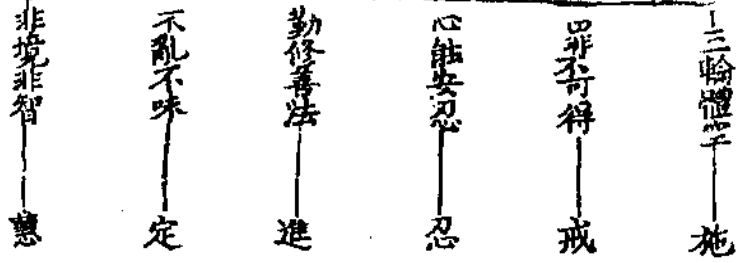 三輪體空——施
罪不可得——戒
心能安忍——忍
勤修善法——進
不亂不味——定
非境非智——慧